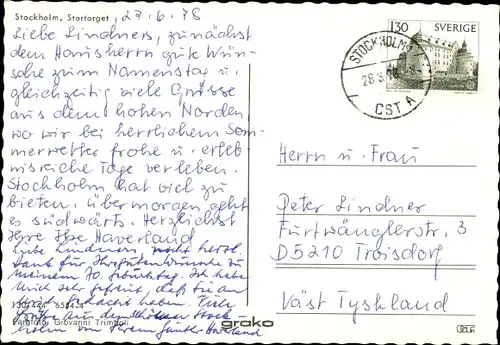 Stockholm, Stortorget, 27.6.78
Liebe Lindners, zunächst
dem Hausherrn gute Wün-
sche zum Namenstag u.
gleichzeitig viele Grüsse
aus dem hohen Norden,
wo wir bei herrlichem Som-
merwetter frohe u. erleb-
nisreiche Tage verleben.
Stockholm hat viel zu
bieten, übermorgen geht
es südwärts. Herzlichst
Ihre Ilse Haverland
Liebe Lindners, recht herzl.
Dank für Ihre guten Wünsche zu
meinem 70. Geburtstag. Ich habe
mich sehr gefreut, daß Sie an
gedacht haben. Viele
Grüße aus dem schönen Stock-
holm von Ihrem Günter Haverland
Giovanni Trimboli
grako
130
SVERIGE
STOCKHOLM
CST A
Herrn u. Frau
Peter Lindner
Furtwänglerstr. 3
D5210 Troisdorf
Väst Tyskland